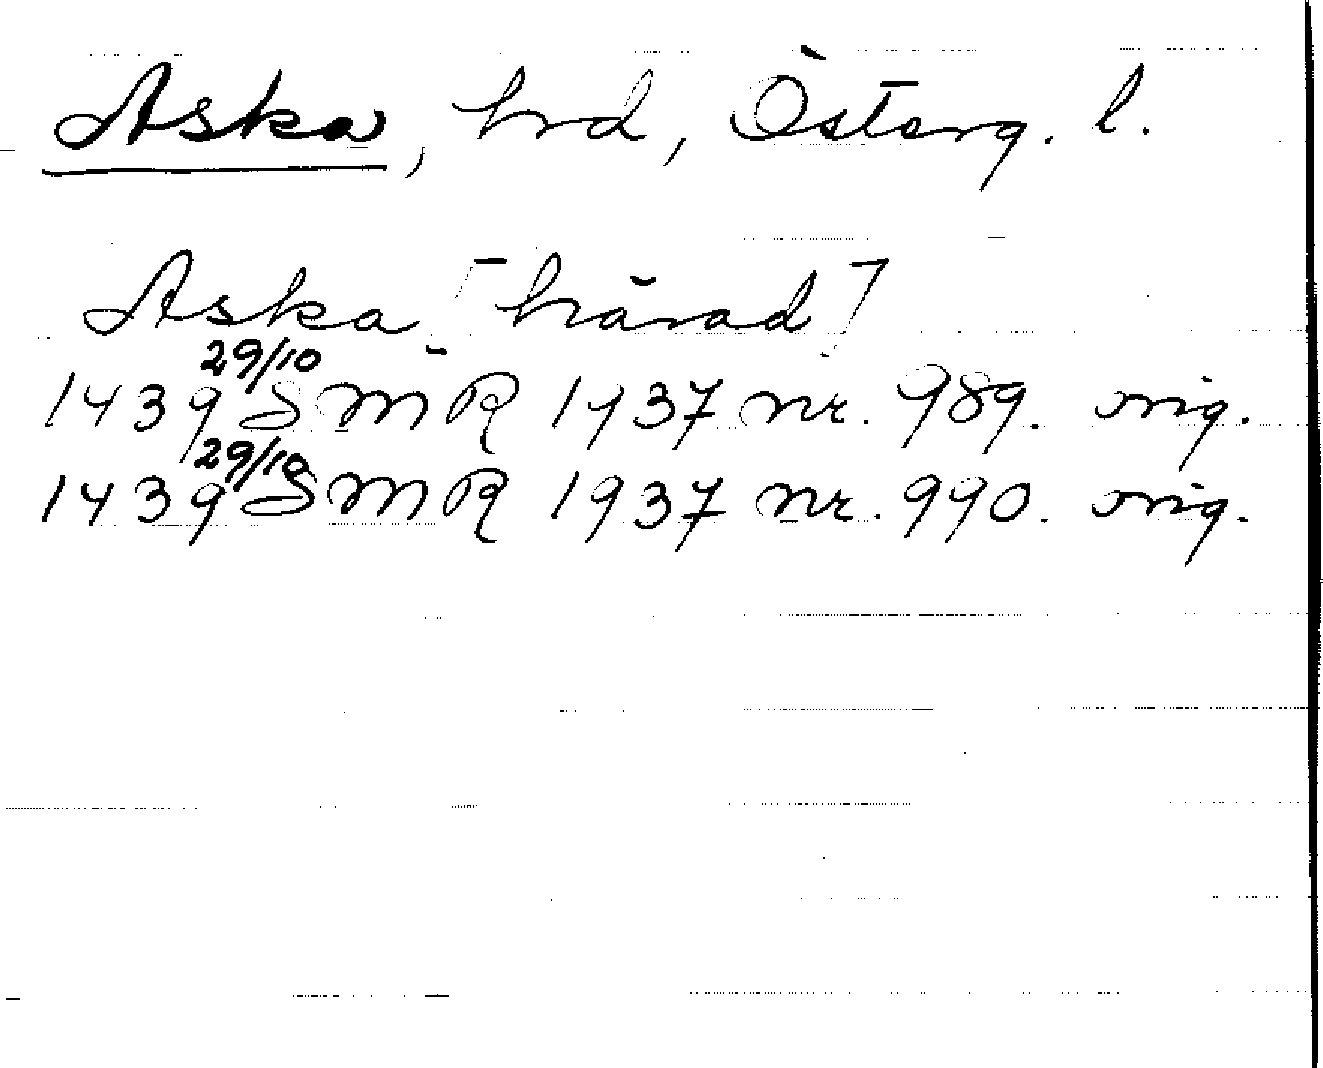 Aska, hrd, Österg. l.
Aska [härad]
1439 29/10 SMR 1937 nr. 989. orig.
1439 29/10 SMR 1937 nr. 990. orig.